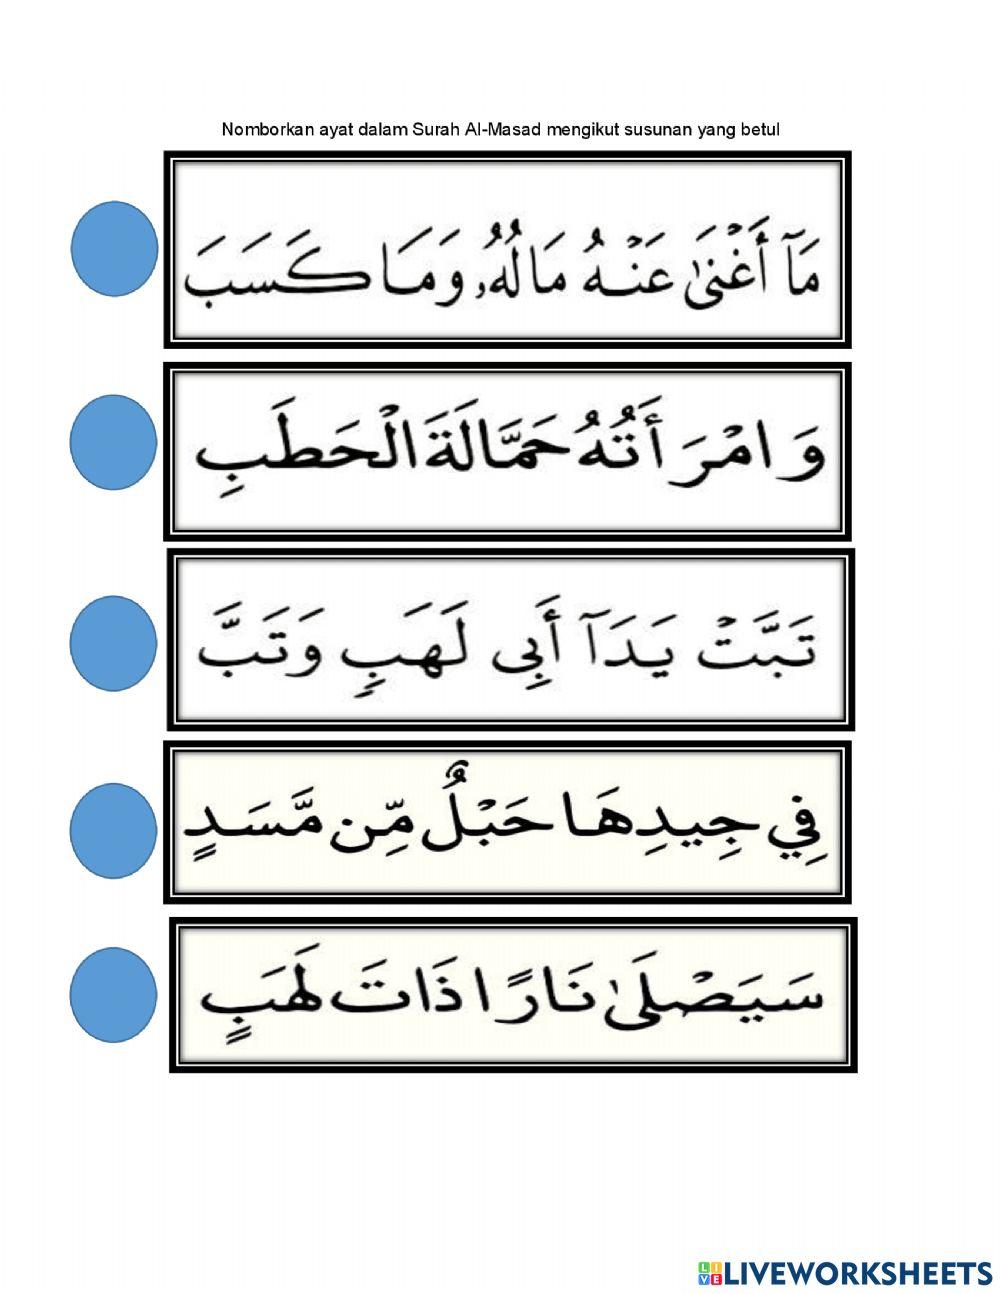 Nomborkan ayat dalam Surah Al-Masad mengikut susunan yang betul
مَآ أَغْنَىٰ عَنْهُ مَالُهُۥ وَمَا كَسَبَ
وَامْرَأَتُهُ حَمَّالَةَ الْحَطَبِ
تَبَّتْ يَدَآ أَبِى لَهَبٍ وَتَبَّ
فِي جِيدِهَا حَبْلٌ مِّن مَّسَدٍ
سَيَصْلَىٰ نَارًا ذَاتَ لَهَبٍ
LIVE LIVEWORKSHEETS